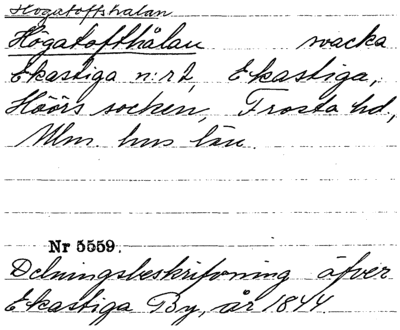 Hogatoftshålan
Högatofthålan svacka
Ekastiga n:r 2, Ekastiga,
Höörs socken, Frosta hd,
Mlm hus län.
Nr 5559.
Delningsbeskrifvning öfver
Ekastiga By, år 1844.